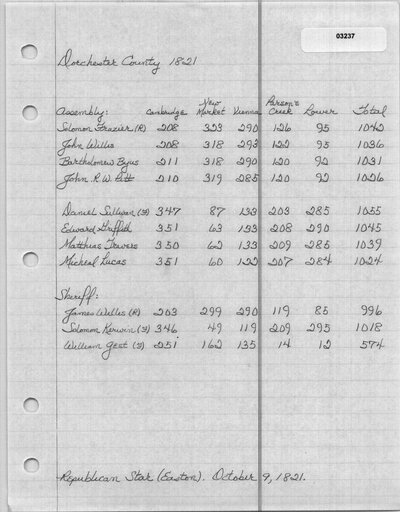 03237
Dorchester County 1821
Assembly: Cambridge New Market Vienna Parson's Creek Lower Total
Solomon Frazier (R) 208 323 290 126 95 1042
John Willis 208 318 293 122 95 1036
Bartholomew Byus 211 318 290 120 92 1031
John R. W. Pitt 210 319 285 120 92 1026
Daniel Sullivan (F) 347 87 133 203 285 1055
Edward Griffith 351 63 133 208 290 1045
Matthias Travers 350 62 133 209 285 1039
Micheal Lucas 351 60 122 207 284 1024
Sheriff:
James Willis (R) 203 299 290 119 85 996
Solomon Kerwin (F) 346 49 119 209 295 1018
William Gest (F) 251 162 135 14 12 574
Republican Star (Easton). October 9, 1821.